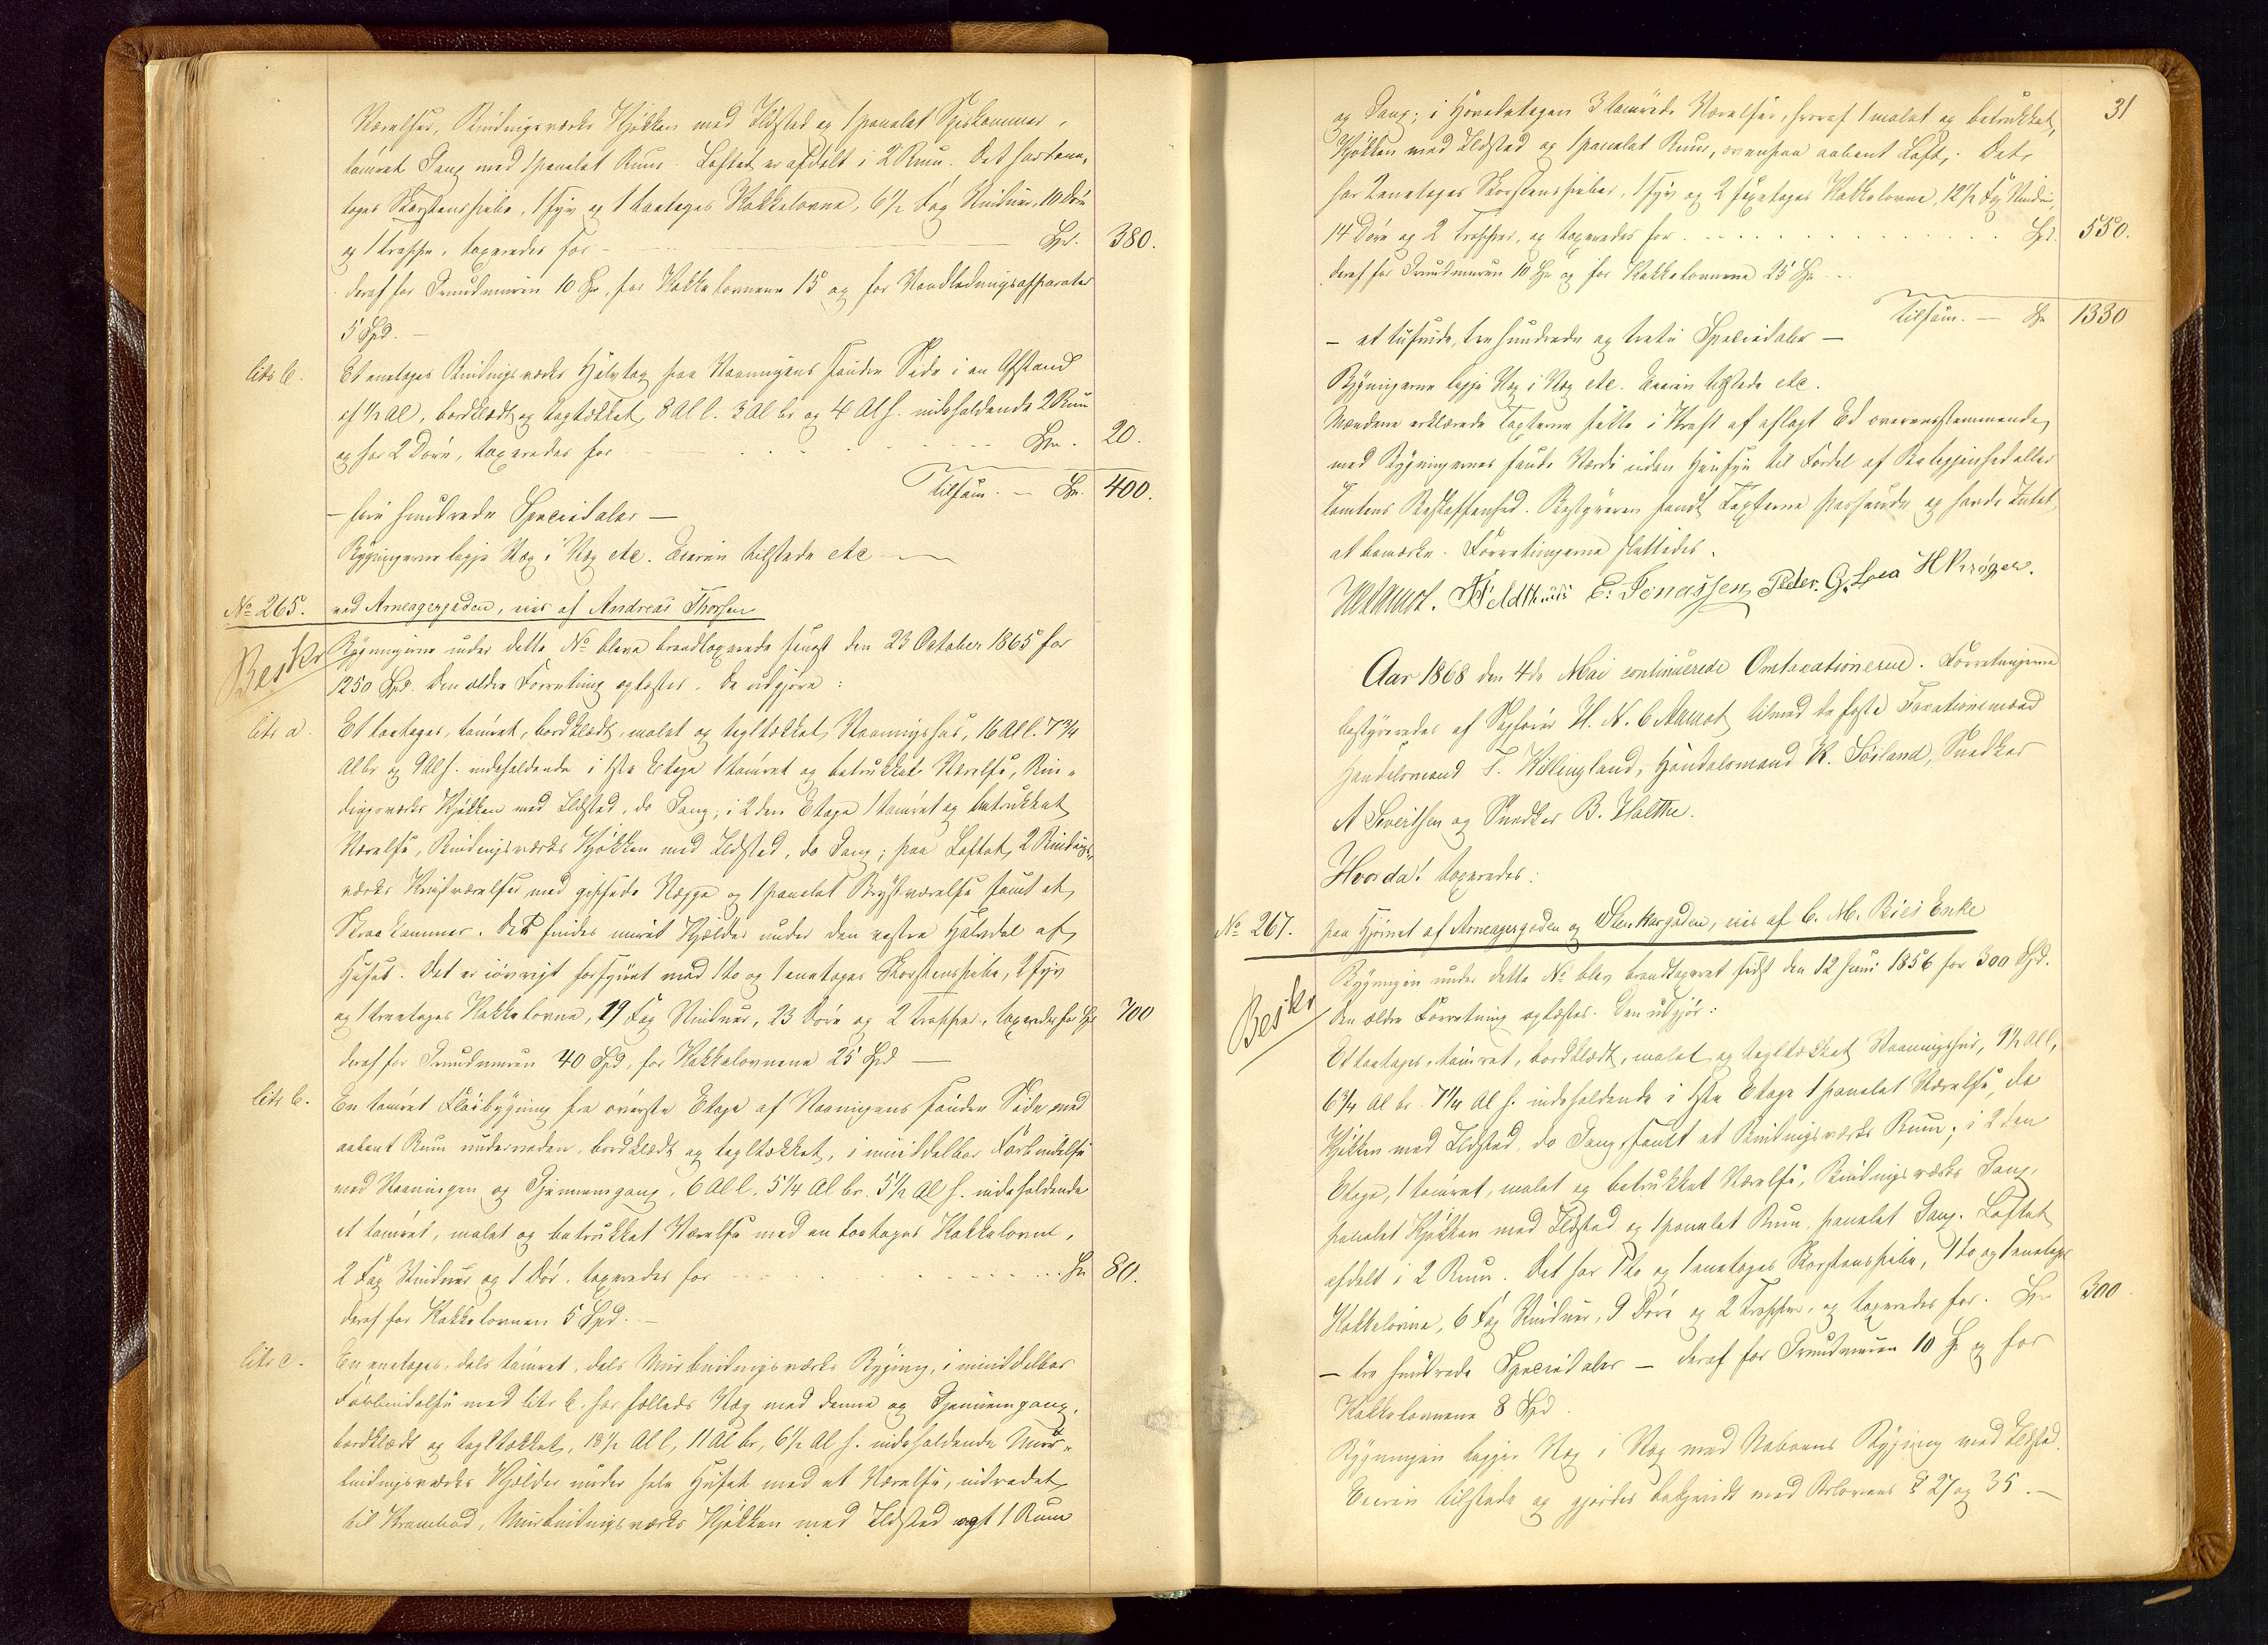 Værelser, Bindingsværks Kjøkken med Ildsted og 1 panelet Spiskammer,
tømret Gang med 1 panelet Rum. Loftet er afdelt i 2 Rum. Det har
tages Skorstenspibe, 1 Fyr og 1 toetages Kakkelovne, 6 1/2 Fag Vinduer, 10 Døre
og 1 Trappe, taxeredes for - Spd. 380.
deraf for Grundmuren 10 Spd, for Kakkelovnene 15 og for Vandledningsapparater
5 Spd. -
litr b. Et enetages Bindingsværks Halvtag paa Vaaningens søndre Side i en Afstand
af 1/2 Al, bordklædt og tagtækket, 8 Al l. 3 Al br og 4 Al h. indeholdende 2 Rum
og har 2 Døre, taxeredes for Spd. 20.
Tilsam. - Spd. 400.
- fire hundrede Speciedaler -
Bygningerne ligge Væg i Væg etc. Eieren tilstede etc
No 265. ved Arneagergaden, eies af Andreas Thorsen
Beskr Bygningerne under dette No bleve brandtaxerede senest den 23 October 1865 for
1250 Spd. Den ældre Forretning oplæstes. De udgjøre:
litr a. Et toetages, tømret, bordklædt, malet og tegltækket Vaaningshus, 16 Al l. 7 3/4
Al br og 9 Al h. indeholdende i 1ste Etage 1 tømret og betrukket Værelse, Bin-
dingsværks Kjøkken med Ildsted, do Gang; i 2den Etage 1 tømret og betrukket
Værelse, Bindingsværks Kjøkken med Ildsted, do Gang; paa Loftet 2 Bindings-
værks Kvistværelser med gipsede Vægge og 1 panelet Brystværelse samt et
Skraakammer. Der findes muret Kjelder under den vestre Halvdel af
Huset. Det er iøvrigt forsynet med 1 to og 1 enetages Skorstenspibe, 2 Fyr
og 1 treetages Kakkelovne, 19 Fag Vinduer, 23 Døre og 2 Trapper, taxeredes for Spd 700
deraf for Grundmuren 40 Spd, for Kakkelovnene 25 Spd -
litr b. En tømret Fløibygning fra øverste Etage af Vaaningens søndre Side med
aabent Rum underneden, bordklædt og tegltækket, i umiddelbar Forbindelse
med Vaaningen og Gjennemgang, 6 Al l. 5 1/4 Al br. 5 1/2 Al h. indeholdende
et tømret, malet og betrukket Værelse med en toetages Kakkelovn,
2 Fag Vinduer og 1 Dør, taxeredes for Spd 80.
deraf for Kakkelovnen 5 Spd. -
litr c. En enetages, dels tømret, dels Murbindingsværks Bygning, i umiddelbar
Forbindelse med litr b. har fælleds Væg med denne og Gjennemgang,
bordklædt og tegltækket, 18 1/2 Al l, 11 Al br, 6 1/2 Al h. indeholdende Mur-
bindingsværks Kjelder under hele Huset med et Værelse, indredet
til Krambod, Murbindingsværks Kjøkken med Ildsted og 1 Rum
31
og Gang; i Hovedetagen 3 tømrede Værelser, hvoraf 1 malet og betrukket,
Kjøkken med Ildsted og 1 panelet Rum, ovenpaa aabent Loft. Det
har 2 enetages Skorstenspiber, 1 Fyr og 2 Kakkelovne, 12 1/2 Fag Vinduer,
14 Døre og 2 Trapper, og taxeredes for Spd. 550.
deraf for Grundmuren 10 Spd og for Kakkelovnene 25 Spd
Tilsam. - Spd 1330
- et tusinde, tre hundrede og treti Speciedaler -
Bygningerne ligge Væg i Væg etc. Eieren tilstede etc.
Mændene erklærede Taxterne satte i Kraft af aflagt Ed overensstemmende
med Bygningernes sande Værdi uden Hensyn til Fordel af Beliggenhed eller
Tomtens Beskaffenhed. Bestyreren fandt Taxterne passende og havde Intet
at bemærke. Forretningerne sluttedes.
Aamot. Feldthuus E. Jonassen Peder. G. Lea H Krøger.
Aar 1868 den 4de Mai continuerede Omtaxationerne. Forretningerne
bestyreredes af H. N. C Aamot tilmed de faste Taxationsmænd
Handelsmand T. Willingland, Handelsmand K. Sørland, Snedker
A Sivertsen og Snedker B. Holthe.
Hvorda! taxeredes:
No 267. paa Hjørnet af Arneagergaden og Stenkargaden, eies af C. M. Bies Enke
Beskr Bygningen under dette No blev brandtaxeret sidst den 12 Juni 1856 for 300 Spd.
Den ældre Forretning oplæstes. Den udgjør:
Et toetages, tømret, bordklædt, malet og tegltækket Vaaningshus, 9 1/2 Al l,
6 3/4 Al br. 7 1/4 Al h. indeholdende i 1ste Etage 1 panelet Værelse, do
Kjøkken med Ildsted, do Gang, samt et Bindingsværks Rum; i 2den
Etage, 1 tømret, malet og betrukket Værelse, Bindingsværks Gang,
panelet Kjøkken med Ildsted og 1 panelet Rum, panelet Gang. Loftet
afdelt i 2 Rum. Det har 1 to og 1 enetages Skorstenspibe, 1 to og 1 enetages
Kakkelovne, 6 Fag Vinduer, 9 Døre og 2 Trapper, og taxeredes for. Spd 300
- tre hundrede Speciedaler - deraf for Grundmuren 10 Spd og for
Kakkelovnene 8 Spd.
Bygningen ligger Væg i Væg med Naboens Bygning med Ildsted.
Eieren tilstede og gjordes bekjendt med Brlovens § 27 og 35. -